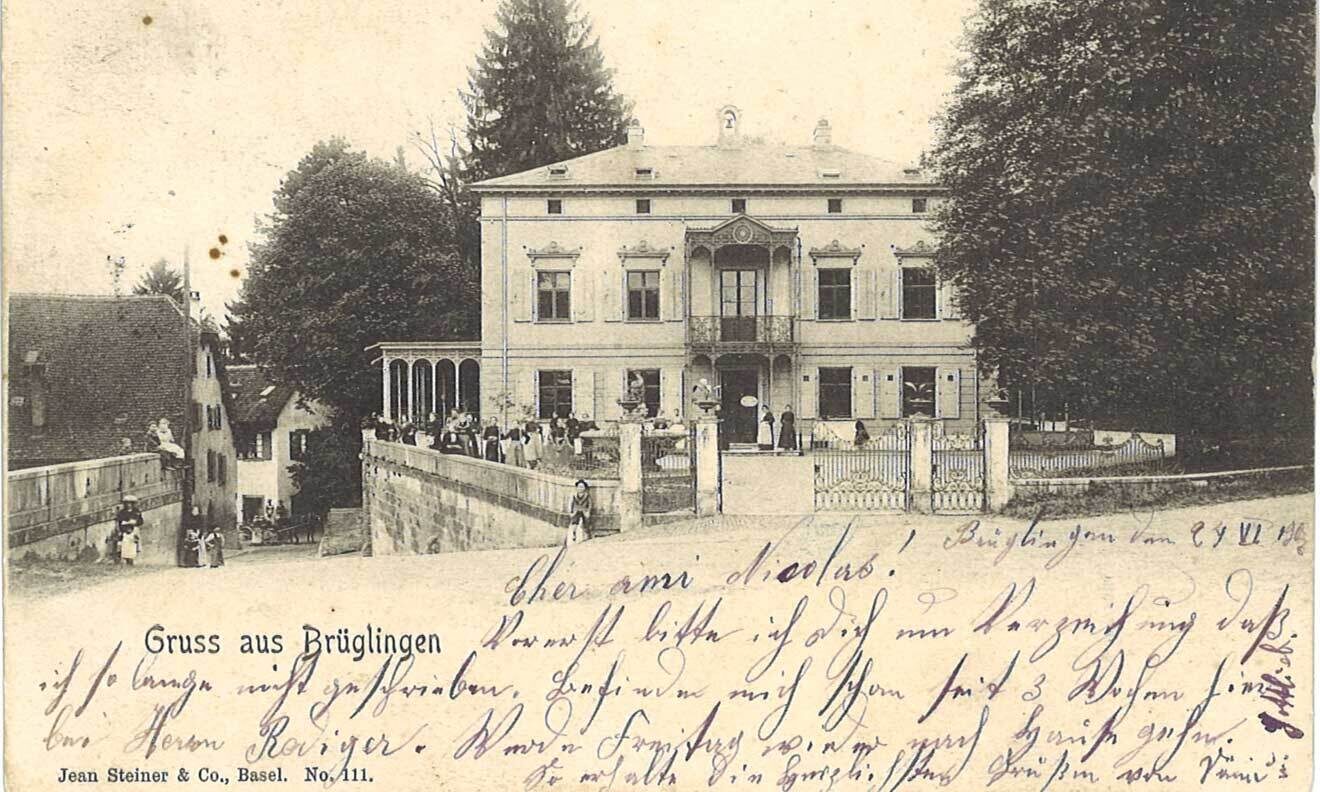 Brüglingen den 24 VI
Cher ami Nicolas!
Gruss aus Brüglingen
Vorerst bitte ich Dich um Verzeichung daß
ich so lange nicht geschrieben. Befinde mich schon seit 3 Wochen hier
bei Herrn Rediger. Werde Freitag wieder nach Hause gehn.
Jean Steiner & Co., Basel. No. 111.
So erhalte die Herzlichsten Grüßen von
Gottlieb.